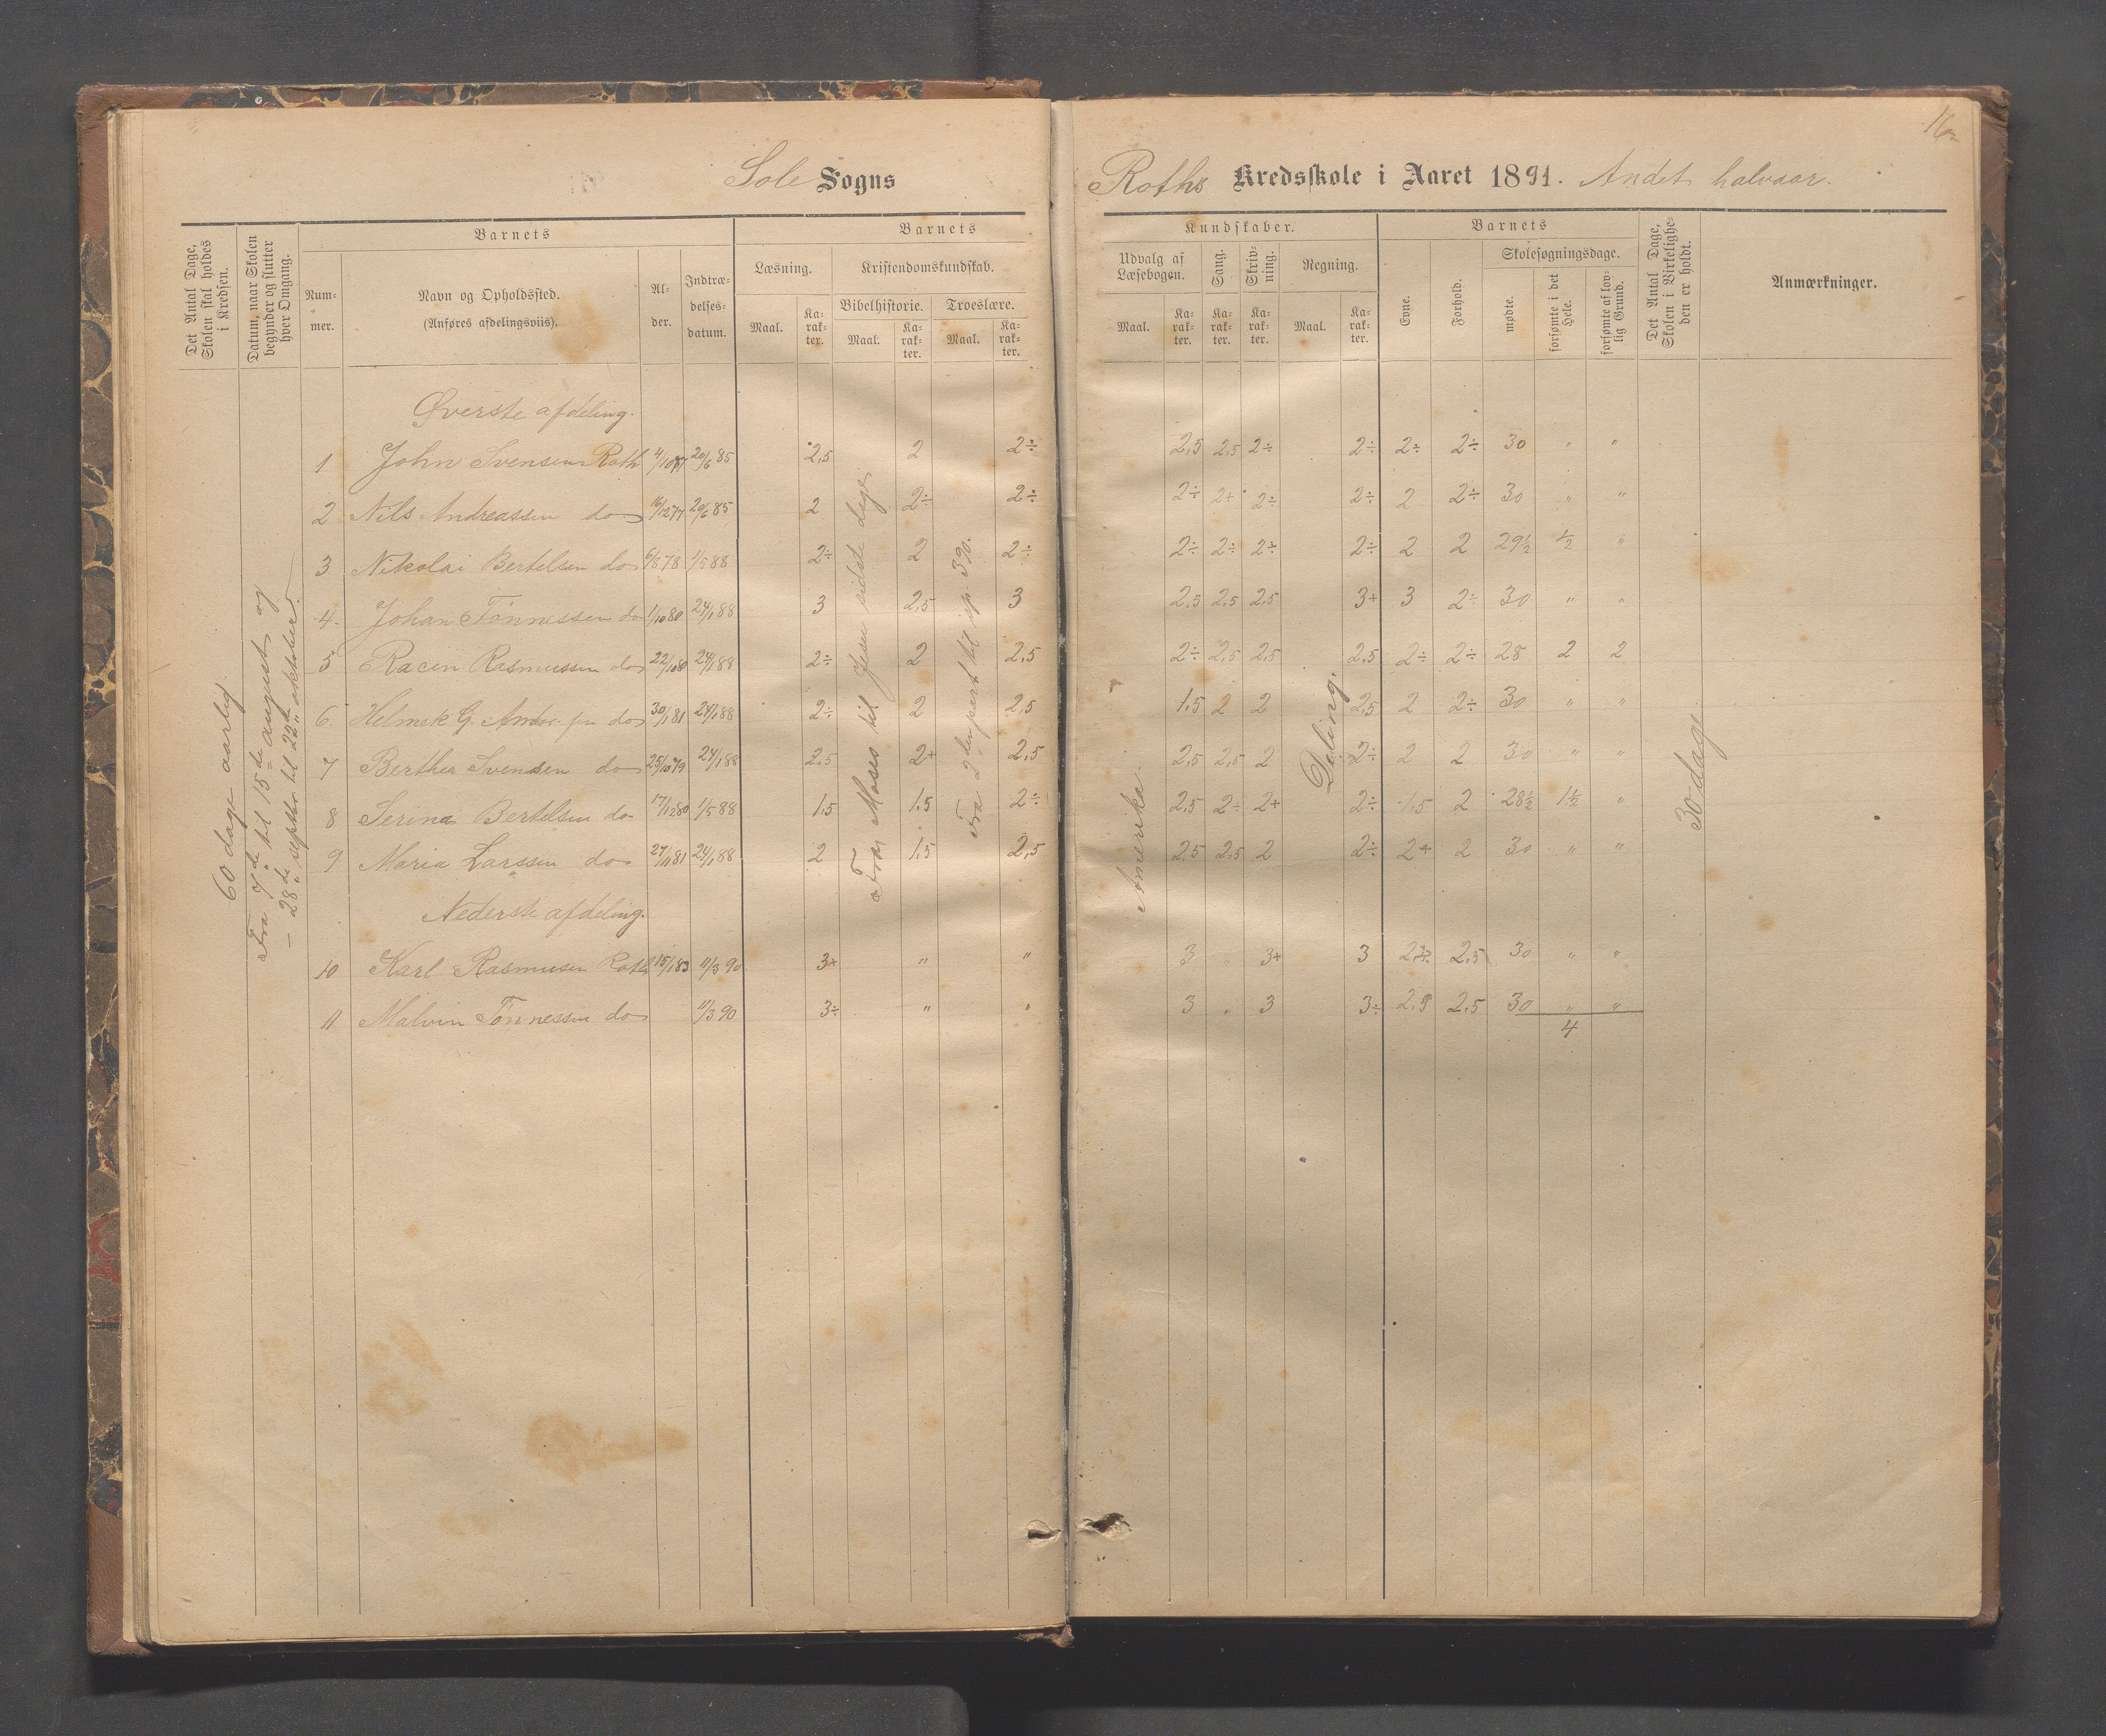 16
Sole Sogns
Roths Kredsskole i Aaret 1891. Andet halvaar.
Det Antal Dage, Skolen skal holdes i Kredsen.
Datum, naar Skolen begynder og slutter hver Omgang.
Barnets
Nummer.
Navn og Opholdssted. (Anføres afdelingsviis).
Alder.
Indtrædelsesdatum.
Barnets
Læsning.
Maal.
Karakter.
Kristendomskundskab.
Bibelhistorie.
Maal.
Karakter.
Troeslære.
Maal.
Karakter.
Kundskaber.
Udvalg af Læsebogen.
Maal.
Karakter.
Sang.
Karakter.
Skrivning.
Karakter.
Regning.
Maal.
Karakter.
Barnets
Evne.
Forhold.
Skolesøgningsdage.
mødte.
forsømte i det Hele.
forsømte af lovlig Grund.
Det Antal Dage, Skolen i Virkeligheden er holdt.
Anmærkninger.
60 dage aarlig.
Fra 7de til 15de august og
– 28de septbr. til 22de oktober.
Fra Moses til Jesu sidste dage
Fra 2den part til sp. 390.
Amerika.
Deling.
30 dage
Øverste afdeling.
1 John Svensen Roth 20/6 85 2,5 2 2÷ 2,5 2,5 2÷ 2÷ 2÷ 2÷ 30 " "
2 Nils Andreassen do 16/12 77 20/6 85 2 2÷ 2÷ 2÷ 2+ 2÷ 2÷ 2 2÷ 30 " "
3 Nikolai Bertelsen do 6/8 78 1/5 88 2÷ 2 2÷ 2÷ 2÷ 2÷ 2÷ 2 2 29½ ½ "
4. Johan Tönnessen do 1/10 80 24/1 88 3 2,5 3 2,5 2,5 2,5 3+ 3 2÷ 30 " "
5 Racin Rasmussen do 22/10 80 24/1 88 2÷ 2 2,5 2÷ 2,5 2,5 2,5 2÷ 2÷ 28 2 2
6. Helmik G. do 30/1 81 24/1 88 2÷ 2 2,5 1,5 2 2 2,5 2 2÷ 30 " "
7 Berther Svendsen do 25/10 79 24/1 88 2,5 2+ 2,5 2,5 2,5 2 2÷ 2 2 30 " "
8 Serina Bertelsen do 17/12 80 1/5 88 1,5 1,5 2÷ 2,5 2÷ 2+ 2÷ 1,5 2 28½ 1½ "
9 Maria Larssen do 24/1 88 2 1,5 2,5 2,5 2,5 2 2÷ 2+ 2 30 " "
Nederste afdeling.
10 Karl Rasmusen Roth 15/1 83 11/3 90 3+ " " 3 " 3+ 3 2,5 30 " "
11 Malvin Tönnessen do 11/3 90 3÷ " " 3 " 3 3÷ 2,5 2,5 30 " "
4